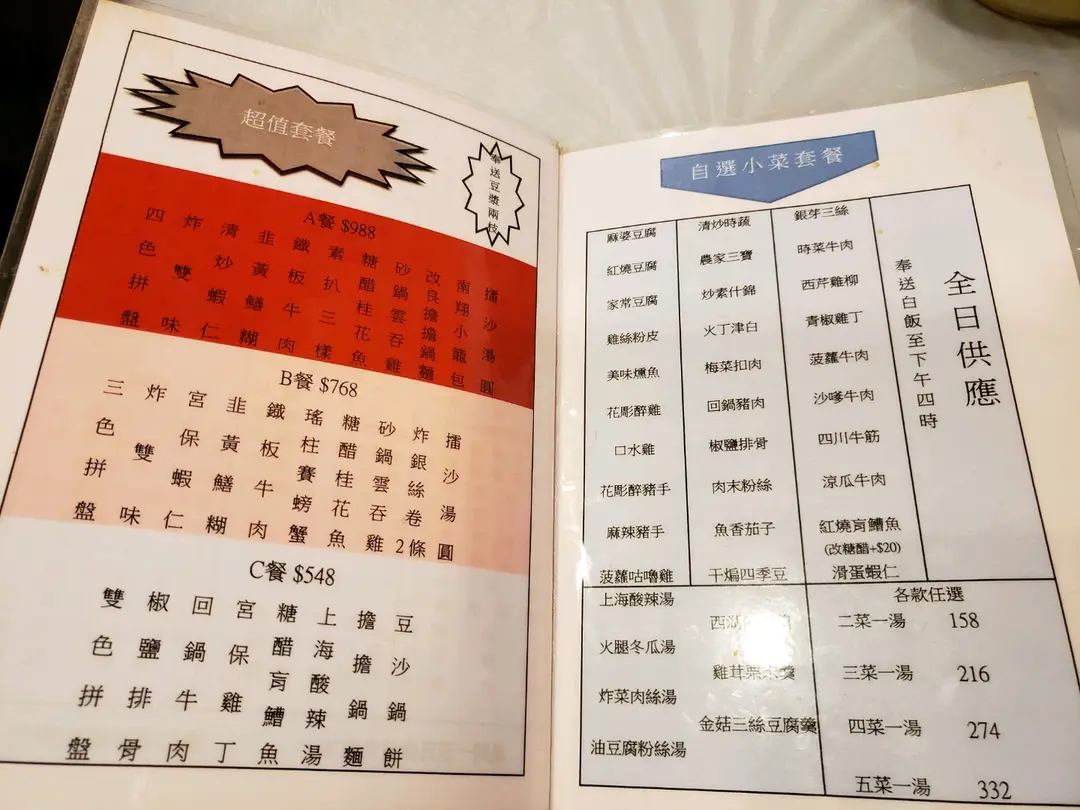 超值套餐
奉送豆漿兩枝
A餐 $988
四色拼盤
炸雙味
清炒蝦仁
韭黃鱔糊
鐵板牛肉
素扒三樣
糖醋桂花魚
砂鍋雲吞雞
改良擔擔鍋麵
南翔小籠包
擂沙湯圓
B餐 $768
三色拼盤
炸雙味
宮保蝦仁
韭黃鱔糊
鐵板牛肉
瑤柱賽螃蟹
糖醋桂花魚
砂鍋雲吞雞
炸銀絲卷2條
擂沙湯圓
C餐 $548
雙色拼盤
椒鹽排骨
回鍋牛肉
宮保雞丁
糖醋肓鰽魚
上海酸辣湯
擔擔鍋麵
豆沙鍋餅
自選小菜套餐
麻婆豆腐
紅燒豆腐
家常豆腐
雞絲粉皮
美味燻魚
花彫醉雞
口水雞
花彫醉豬手
麻辣豬手
菠蘿咕嚕雞
清炒時蔬
農家三寶
炒素什錦
火丁津白
梅菜扣肉
回鍋豬肉
椒鹽排骨
肉末粉絲
魚香茄子
干煸四季豆
銀芽三絲
時菜牛肉
西芹雞柳
青椒雞丁
菠蘿牛肉
沙嗲牛肉
四川牛筋
涼瓜牛肉
紅燒肓鰽魚
(改糖醋+$20)
滑蛋蝦仁
全日供應
奉送白飯至下午四時
上海酸辣湯
火腿冬瓜湯
炸菜肉絲湯
油豆腐粉絲湯
西湖
雞茸粟米羹
金菇三絲豆腐羹
各款任選
二菜一湯 158
三菜一湯 216
四菜一湯 274
五菜一湯 332